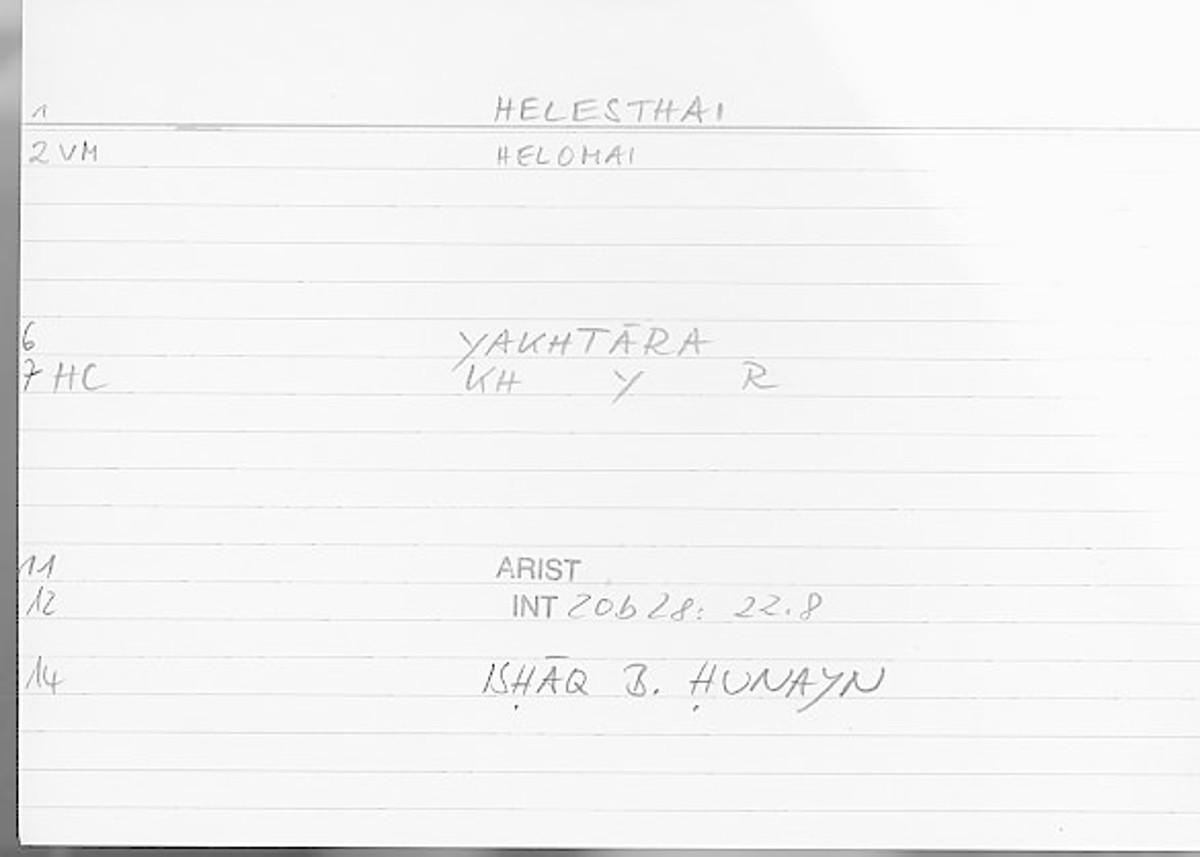 1 HELESTHAI
2 VM HELOMAI
6 YAKHTĀRA
7 HC KH Y R
11 ARIST
12 INT 20b28: 22.8
14 ISḤĀQ B. ḤUNAYN